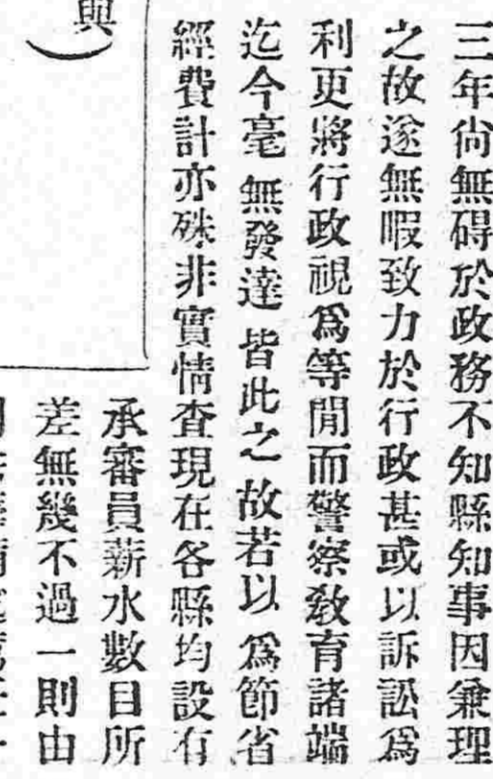 三年尙無碍於政務不知縣知事因兼理
之故遂無暇致力於行政甚或以訴訟爲
利更將行政視爲等閒而警察敎育諸端
迄今毫無發達皆此之故若以爲節省
經費計亦殊非實情查現在各縣均設有
承審員薪水數目所
差無幾不過一則由
與）